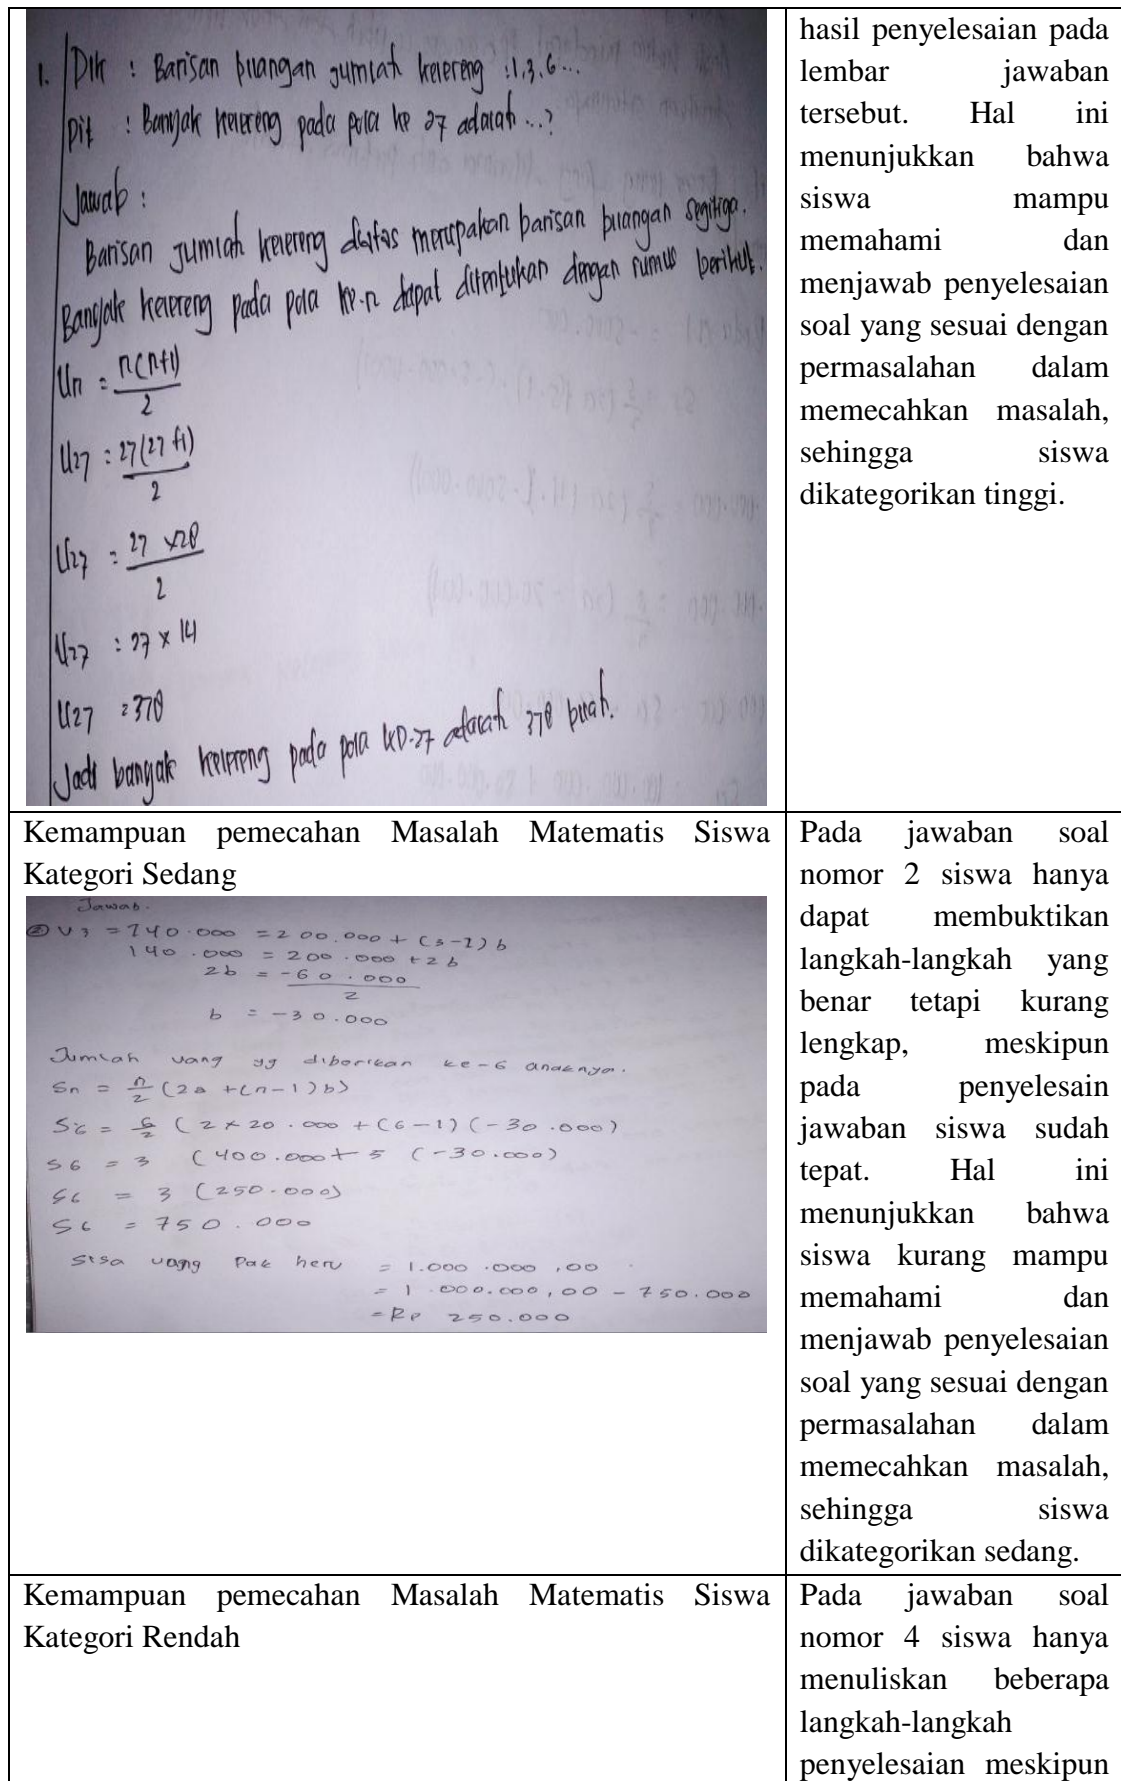 1. Dik : Barisan bilangan jumlah kelereng : 1, 3, 6 ...
Dit : Banyak kelereng pada pola ke 27 adalah ...?
Jawab :
Barisan jumlah kelereng diatas merupakan barisan bilangan segitiga.
Banyak kelereng pada pola ke-n dapat ditentukan dengan rumus berikut.
Un = n(n+1) / 2
U27 : 27(27+1) / 2
U27 : 27 x 28 / 2
U27 : 27 x 14
U27 = 378
Jadi banyak kelereng pada pola ke-27 adalah 378 buah.
hasil penyelesaian pada
lembar jawaban
tersebut. Hal ini
menunjukkan bahwa
siswa mampu
memahami dan
menjawab penyelesaian
soal yang sesuai dengan
permasalahan dalam
memecahkan masalah,
sehingga siswa
dikategorikan tinggi.
Kemampuan pemecahan Masalah Matematis Siswa
Kategori Sedang
Jawab.
② U3 = 140.000 = 200.000 + (3-1) b
140.000 = 200.000 + 2b
2b = -60.000 / 2
b = -30.000
Jumlah uang yg diberikan ke-6 anaknya.
Sn = n/2 (2a + (n-1) b)
S6 = 6/2 (2 x 20.000 + (6-1) (-30.000)
S6 = 3 (400.000 + 5 (-30.000)
S6 = 3 (250.000)
S6 = 750.000
Sisa uang Pak heru = 1.000.000,00
= 1.000.000,00 - 750.000
= Rp 250.000
Pada jawaban soal
nomor 2 siswa hanya
dapat membuktikan
langkah-langkah yang
benar tetapi kurang
lengkap, meskipun
pada penyelesain
jawaban siswa sudah
tepat. Hal ini
menunjukkan bahwa
siswa kurang mampu
memahami dan
menjawab penyelesaian
soal yang sesuai dengan
permasalahan dalam
memecahkan masalah,
sehingga siswa
dikategorikan sedang.
Kemampuan pemecahan Masalah Matematis Siswa
Kategori Rendah
Pada jawaban soal
nomor 4 siswa hanya
menuliskan beberapa
langkah-langkah
penyelesaian meskipun